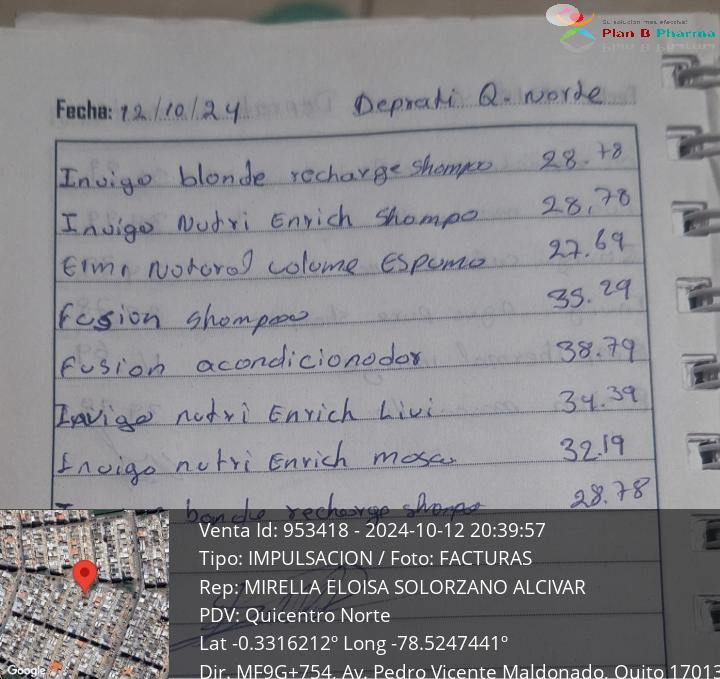 Su solución mas efectiva!
Plan B Pharma
Fecha: 12/10/24 Deprati Q. Norte
Invigo blonde recharge shompo 28.78
Invigo Nutri Enrich Shompo 28,78
Eimi Notoral volume Espumo 27.69
Fusion shompoo 35.29
Fusion acondicionodor 38.79
Invigo nutri Enrich Livi 34.39
Invigo nutri Enrich masca 32.19
bonde recharge shompo 28.78
Venta Id: 953418 - 2024-10-12 20:39:57
Tipo: IMPULSACION / Foto: FACTURAS
Rep: MIRELLA ELOISA SOLORZANO ALCIVAR
PDV: Quicentro Norte
Lat -0.3316212° Long -78.5247441°
Dir. MF9G+754, Av. Pedro Vicente Maldonado, Quito 17013
Google